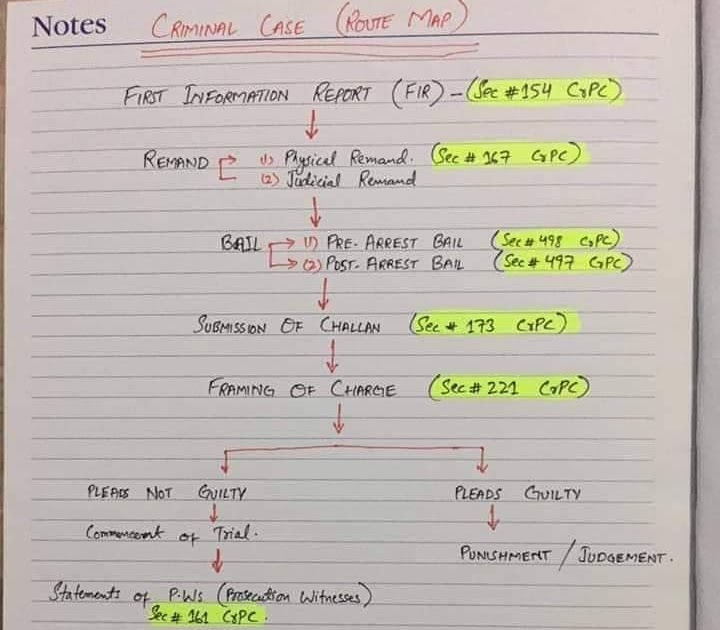 Notes CRIMINAL CASE (ROUTE MAP)
FIRST INFORMATION REPORT (FIR) - (Sec # 154 CrPC)
REMAND (1) Physical Remand. (Sec # 167 CrPC)
(2) Judicial Remand
BAIL (1) PRE-ARREST BAIL (Sec # 498 CrPC)
(2) POST-ARREST BAIL (Sec # 497 CrPC)
SUBMISSION OF CHALLAN (Sec # 173 CrPC)
FRAMING OF CHARGE (Sec # 221 CrPC)
PLEADS NOT GUILTY PLEADS GUILTY
Commencement of Trial.
PUNISHMENT / JUDGEMENT.
Statements of P.Ws (Prosecution Witnesses)
Sec # 161 CrPC.